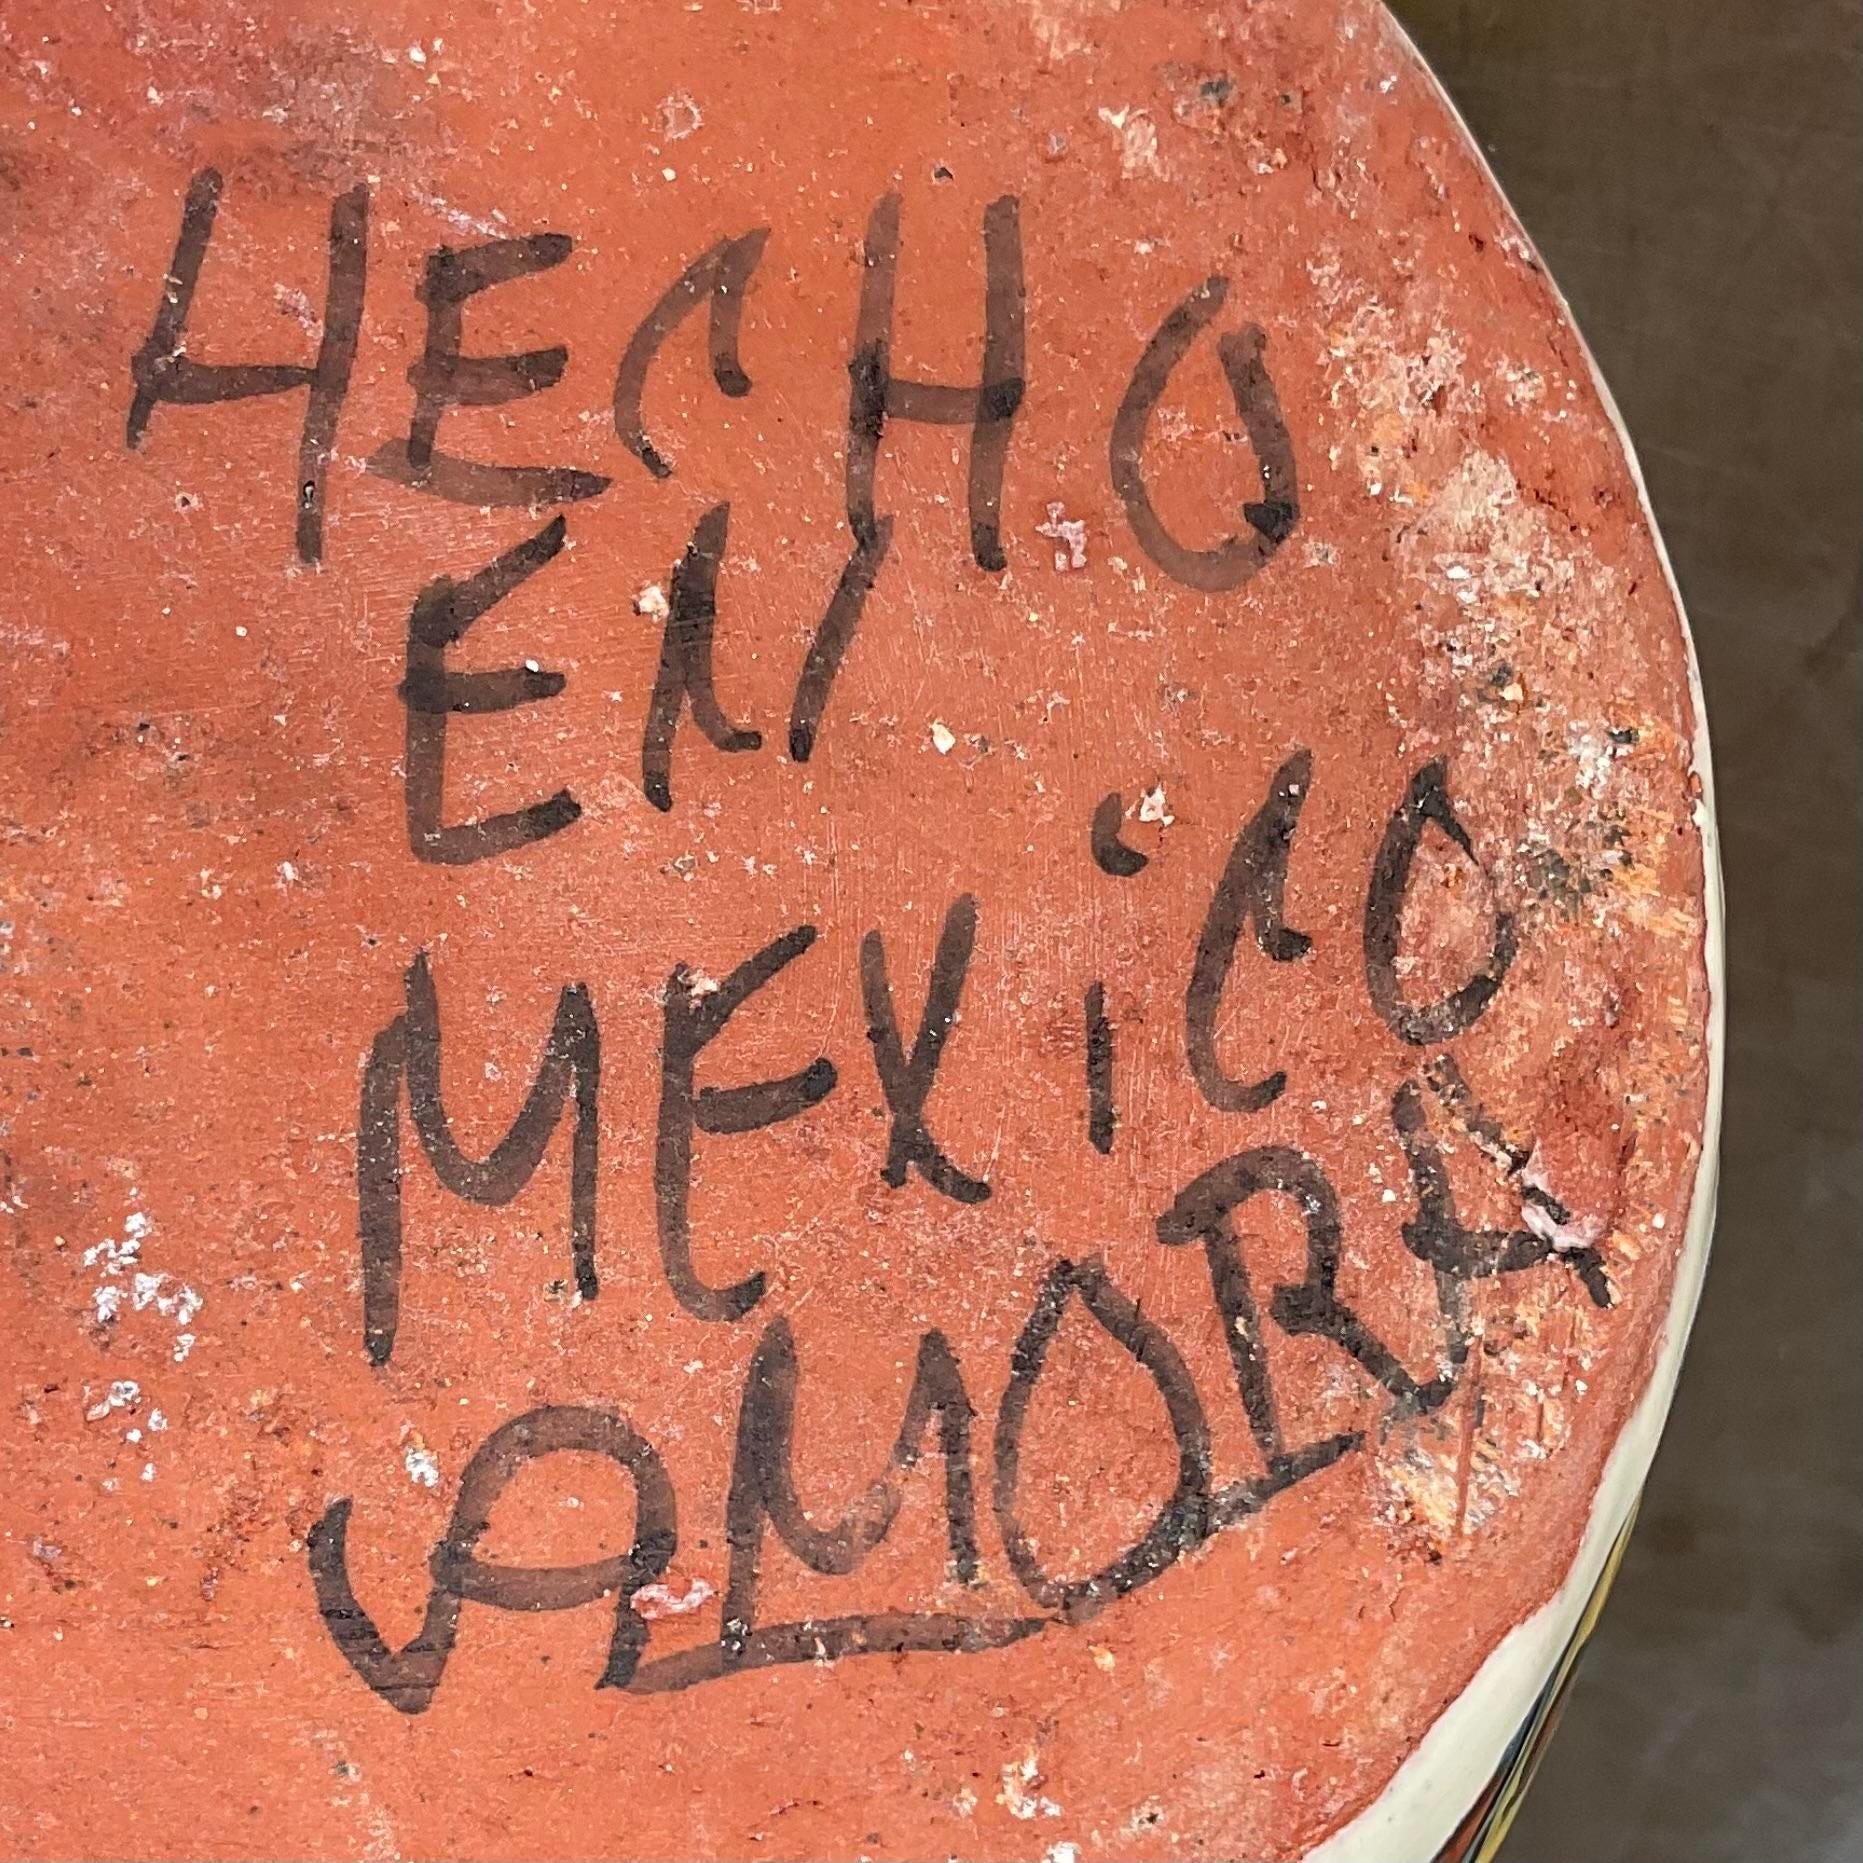 HECHO
EN
MEXiCO
VAMORA